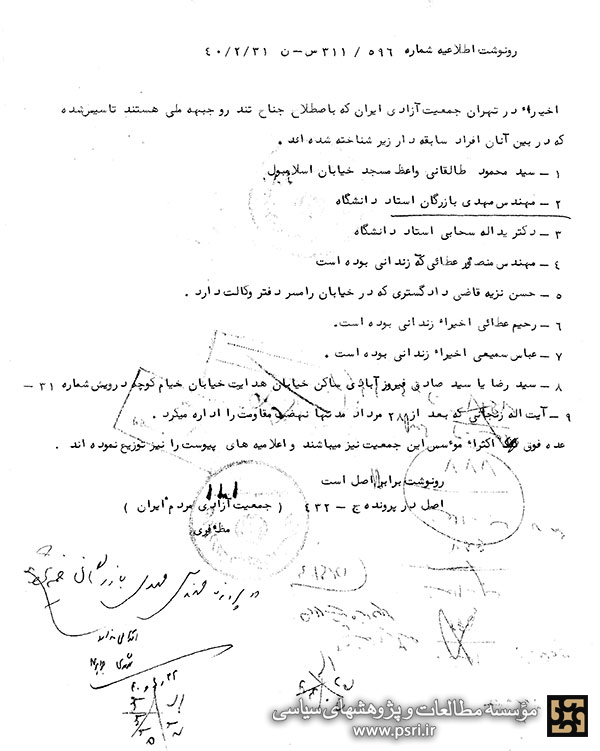 رونوشت اطلاعیه شماره ۵۹۶ / ۳۱۱ س - ن ۴۰/۲/۳۱
اخیراً در تهران جمعیت آزادی ایران که باصطلاح جناح تند رو جبهه ملی هستند تاسیس شده
که در بین آنان افراد سابقه دار زیر شناخته شده اند .
۱ - سید محمود طالقانی واعظ مسجد خیابان اسلامبول
۲ - مهندس مهدی بازرگان استاد دانشگاه
۳ - دکتر یداله سحابی استاد دانشگاه
۴ - مهندس منصور عطائی که زندانی بوده است
۵ - حسن نزیه قاضی دادگستری که در خیابان رامسر دفتر وکالت دارد .
۶ - رحیم عطائی اخیراً زندانی بوده است.
۷ - عباس سمیعی اخیراً زندانی بوده است .
۸ - سید رضا یا سید صادق فیروزآبادی ساکن خیابان هدایت خیابان خیام کوچه درویش شماره ۳۱ -
۹ - آیت اله زنجانی که بعد از ۲۸ مرداد مدتها نهضت مقاومت را اداره میکرد .
عده فوق اکثراً مؤسس این جمعیت نیز میباشند و اعلامیه های پیوست را نیز توزیع نموده اند .
رونوشت برابر اصل است
اصل در پرونده ج - ۴۳۲ ( جمعیت آزادی مردم ایران )
مظفری
در پرونده مهندس مهدی بازرگان
مؤسسه مطالعات و پژوهشهای سیاسی
www.psri.ir